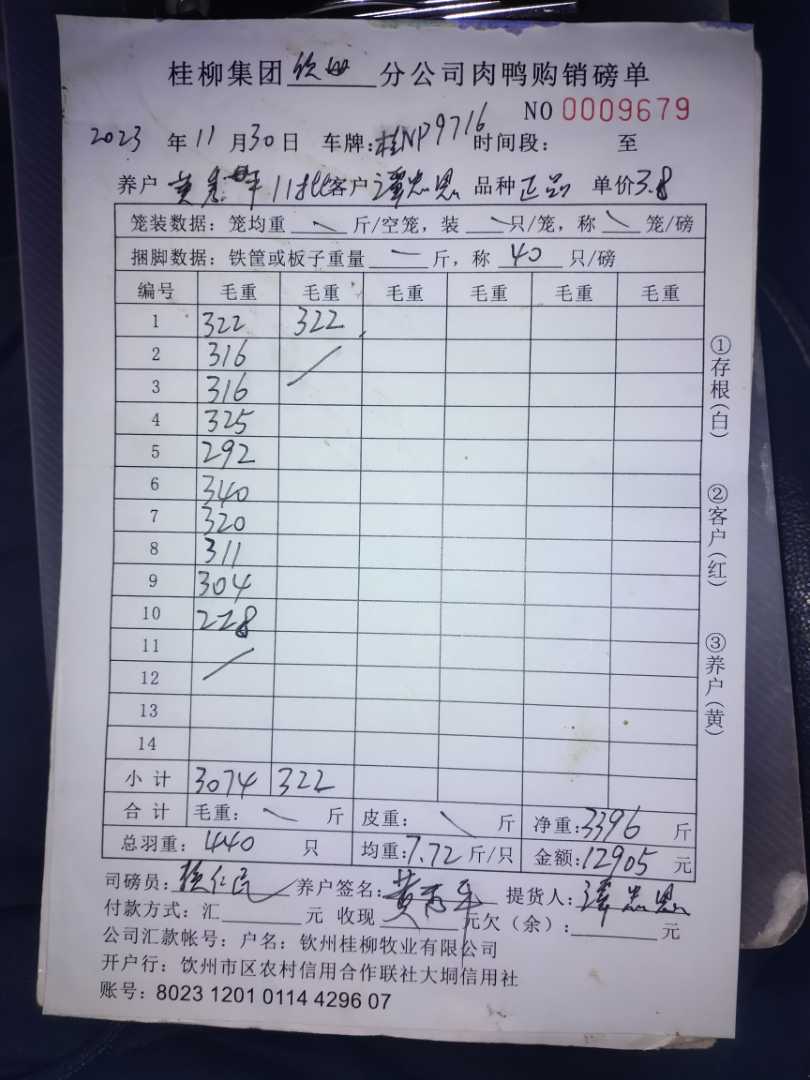 桂柳集团钦州分公司肉鸭购销磅单
NO 0009679
2023年11月30日 车牌:桂NP9716 时间段: 至
养户 11批 客户 谭忠恩 品种 正品 单价 3.8
笼装数据: 笼均重 \ 斤/空笼, 装 \ 只/笼, 称 \ 笼/磅
捆脚数据: 铁筐或板子重量 — 斤, 称 40 只/磅
编号 毛重 毛重 毛重 毛重 毛重 毛重
1 322 322
2 316 /
3 316
4 325
5 292
6 340
7 320
8 311
9 304
10 228
11
12 /
13
14
小计 3074 322
合计 毛重: \ 斤 皮重: \ 斤 净重:3396 斤
总羽重: 440 只 均重:7.72 斤/只 金额:12905 元
司磅员: 养户签名: 提货人: 谭忠恩
付款方式: 汇 元 收现 元 欠(余): 元
公司汇款帐号: 户名: 钦州桂柳牧业有限公司
开户行: 钦州市区农村信用合作联社大垌信用社
账号: 8023 1201 0114 4296 07
①存根(白) ②客户(红) ③养户(黄)